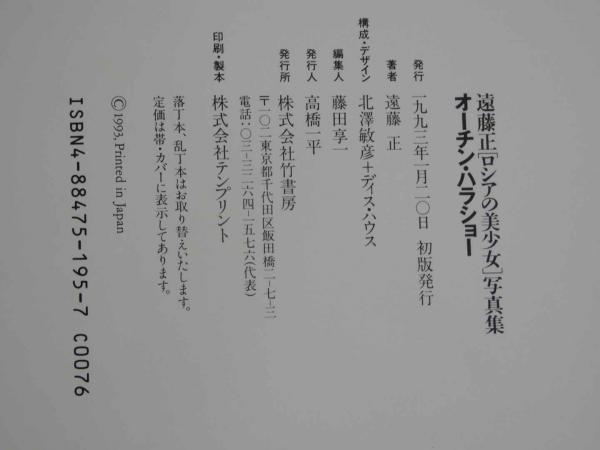 遠藤正[ロシアの美少女]写真集
オーチン・ハラショー
発行 一九九三年一月二〇日 初版発行
著者 遠藤 正
構成・デザイン 北澤敏彦+ディス・ハウス
編集人 藤田享一
発行人 高橋一平
発行所 株式会社竹書房
〒一〇二東京都千代田区飯田橋二-七-三
電話:〇三-三二六四-一五七六(代表)
印刷・製本 株式会社テンプリント
落丁本、乱丁本はお取り替えいたします。
定価は帯・カバーに表示してあります。
©1993, Printed in Japan
ISBN4-88475-195-7 C0076